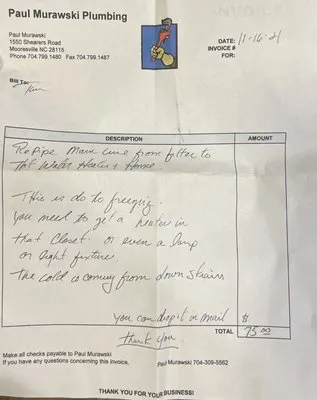 Paul Murawski Plumbing
Paul Murawski
1550 Shearers Road
Mooresville NC 28115
Phone 704.799.1480 Fax 704.799.1487
DATE: 11-16-21
INVOICE #
FOR:
Bill To:
DESCRIPTION AMOUNT
RePipe Main Line from filter to
Hot Water Heater + Home
This is do to freezing.
You need to get a heater in
that Closet. or even a lamp
or light fixture.
The cold is coming from down stairs
you can drop it or mail $
Thank you
TOTAL 75.00
Make all checks payable to Paul Murawski
If you have any questions concerning this invoice, Paul Murawski 704-309-5562
THANK YOU FOR YOUR BUSINESS!